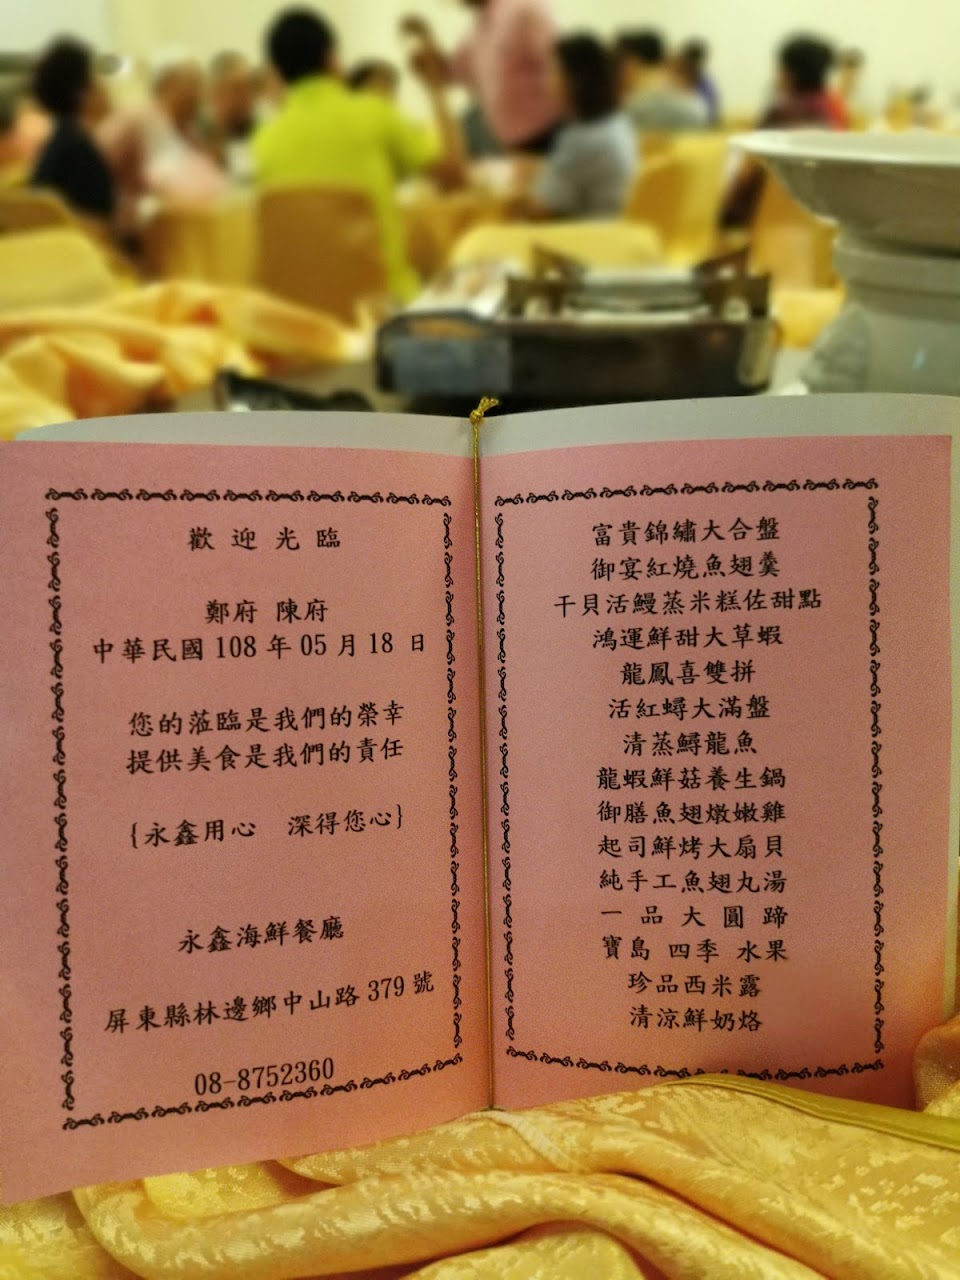 歡迎光臨
鄭府 陳府
中華民國108年05月18日
您的蒞臨是我們的榮幸
提供美食是我們的責任
{永鑫用心 深得您心}
永鑫海鮮餐廳
屏東縣林邊鄉中山路379號
08-8752360
富貴錦繡大合盤
御宴紅燒魚翅羹
干貝活鰻蒸米糕佐甜點
鴻運鮮甜大草蝦
龍鳳喜雙拼
活紅蟳大滿盤
清蒸鱘龍魚
龍蝦鮮菇養生鍋
御膳魚翅燉嫩雞
起司鮮烤大扇貝
純手工魚翅丸湯
一品大圓蹄
寶島 四季 水果
珍品西米露
清涼鮮奶烙